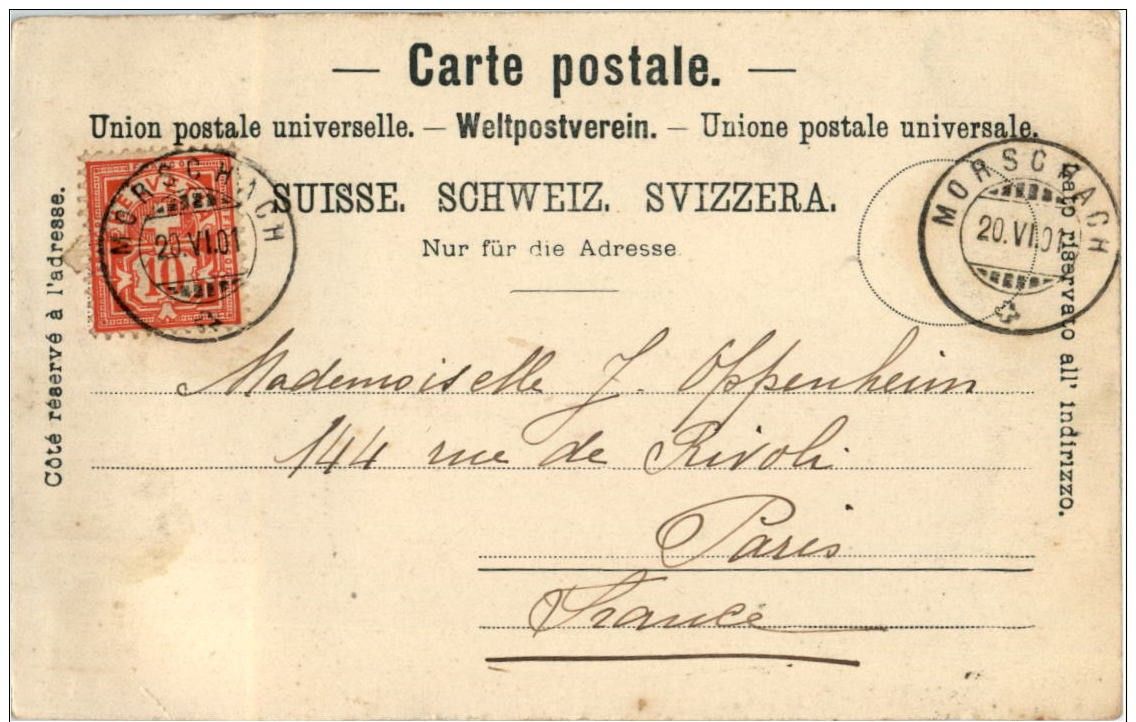 — Carte postale. —
Union postale universelle. — Weltpostverein. — Unione postale universale.
SUISSE. SCHWEIZ. SVIZZERA.
Nur für die Adresse
Côté réservé à l'adresse.
Lato riservato all' indirizzo.
MORSCHACH
20.VI.01
10
MORSCHACH
20.VI.01
Mademoiselle J. Oppenheim
144 rue de Rivoli
Paris
France